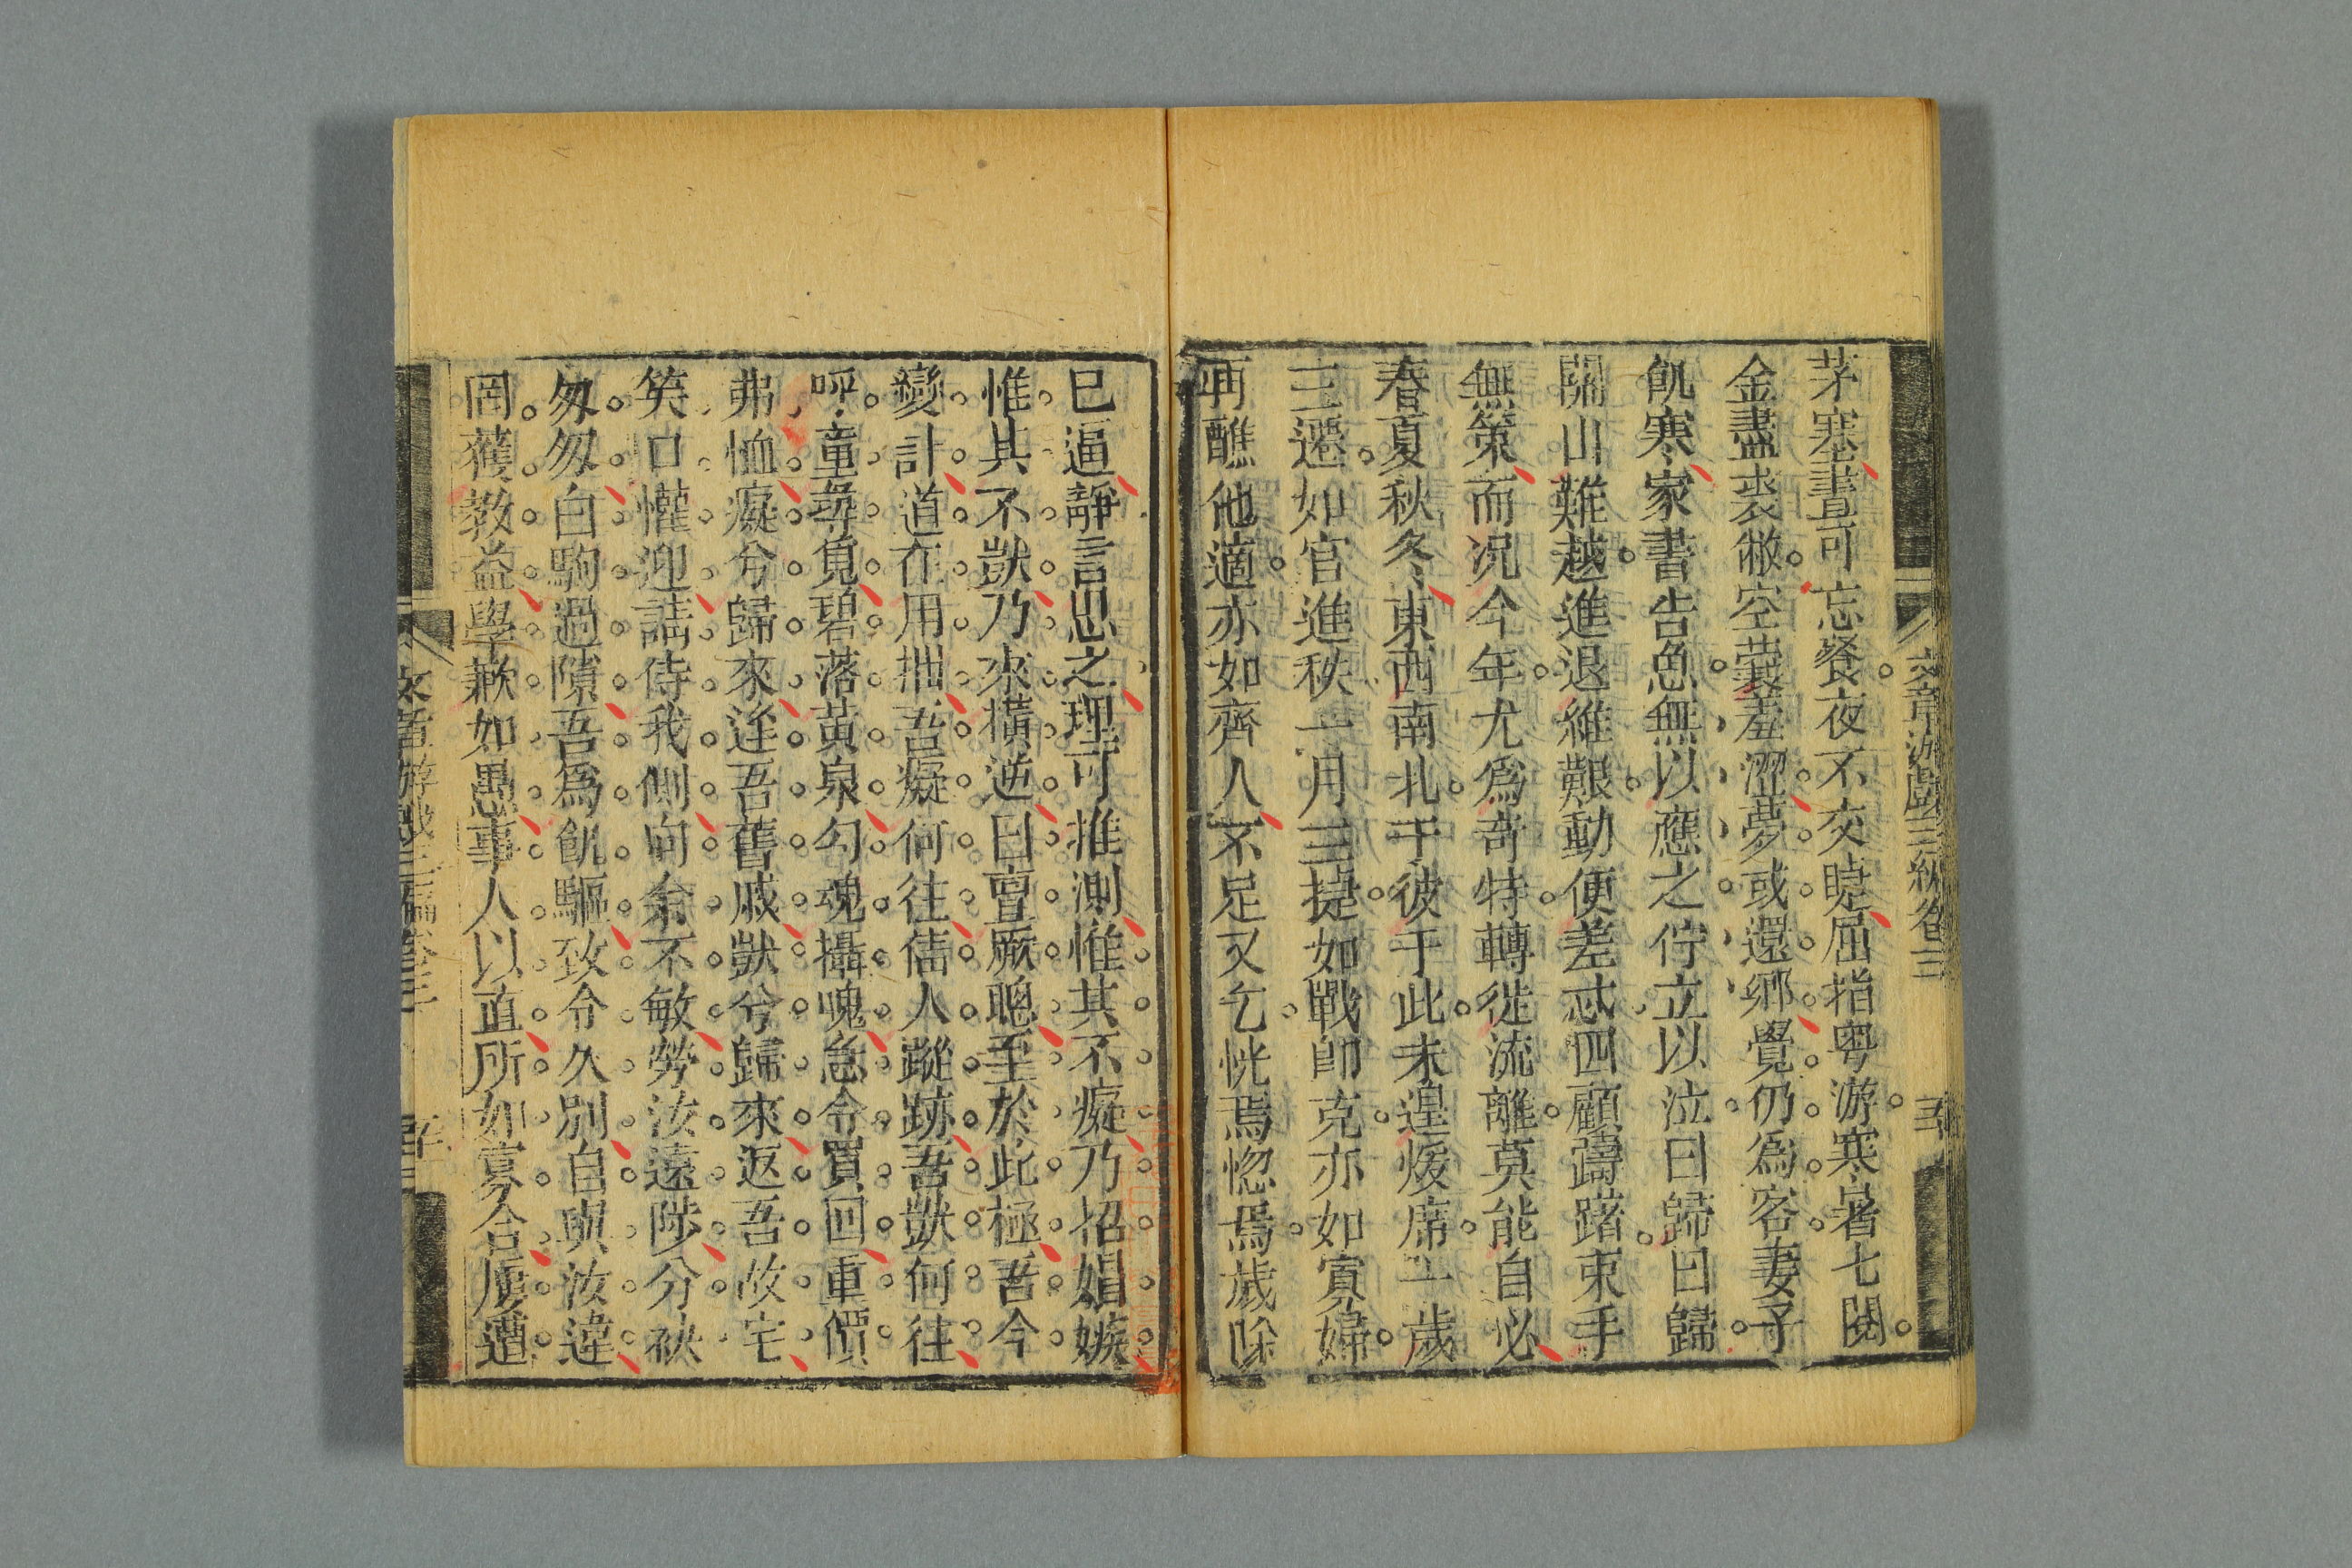 茅塞晝可忘餐夜不交睫屈指粵游寒暑七閱
金盡裘敝空囊羞澀夢或還鄉覺仍爲客妻子
飢寒家書告急無以應之佇立以泣曰歸曰歸
關山難越進退維艱動便差忒四顧躊躇束手
無策而況今年尤爲奇特轉徙流離莫能自必
春夏秋冬東西南北于彼于此未遑煖席一歲
三遷如官進秩一月三捷如戰卽克亦如寡婦
再醮他適亦如齊人不足又乞恍焉惚焉歲除
文章游戲三編卷三
已逼靜言思之理可推測惟其不癡乃招娼嫉
惟其不獃乃來橫逆曰亶厥聰至於此極吾今
變計道在用拙吾癡何往倩人蹤跡吾獃何往
呼童尋覓碧落黃泉勾魂攝魄急令買回重價
弗恤癡兮歸來迯吾舊戚獃兮歸來返吾故宅
笑口懽迎請侍我側向余不敏勞汝遠陟分袂
匆匆白駒過隙吾爲飢驅致令久別自與汝違
罔獲教益學歉如愚事人以直所如寡合屢遭
文章游戲三編卷三